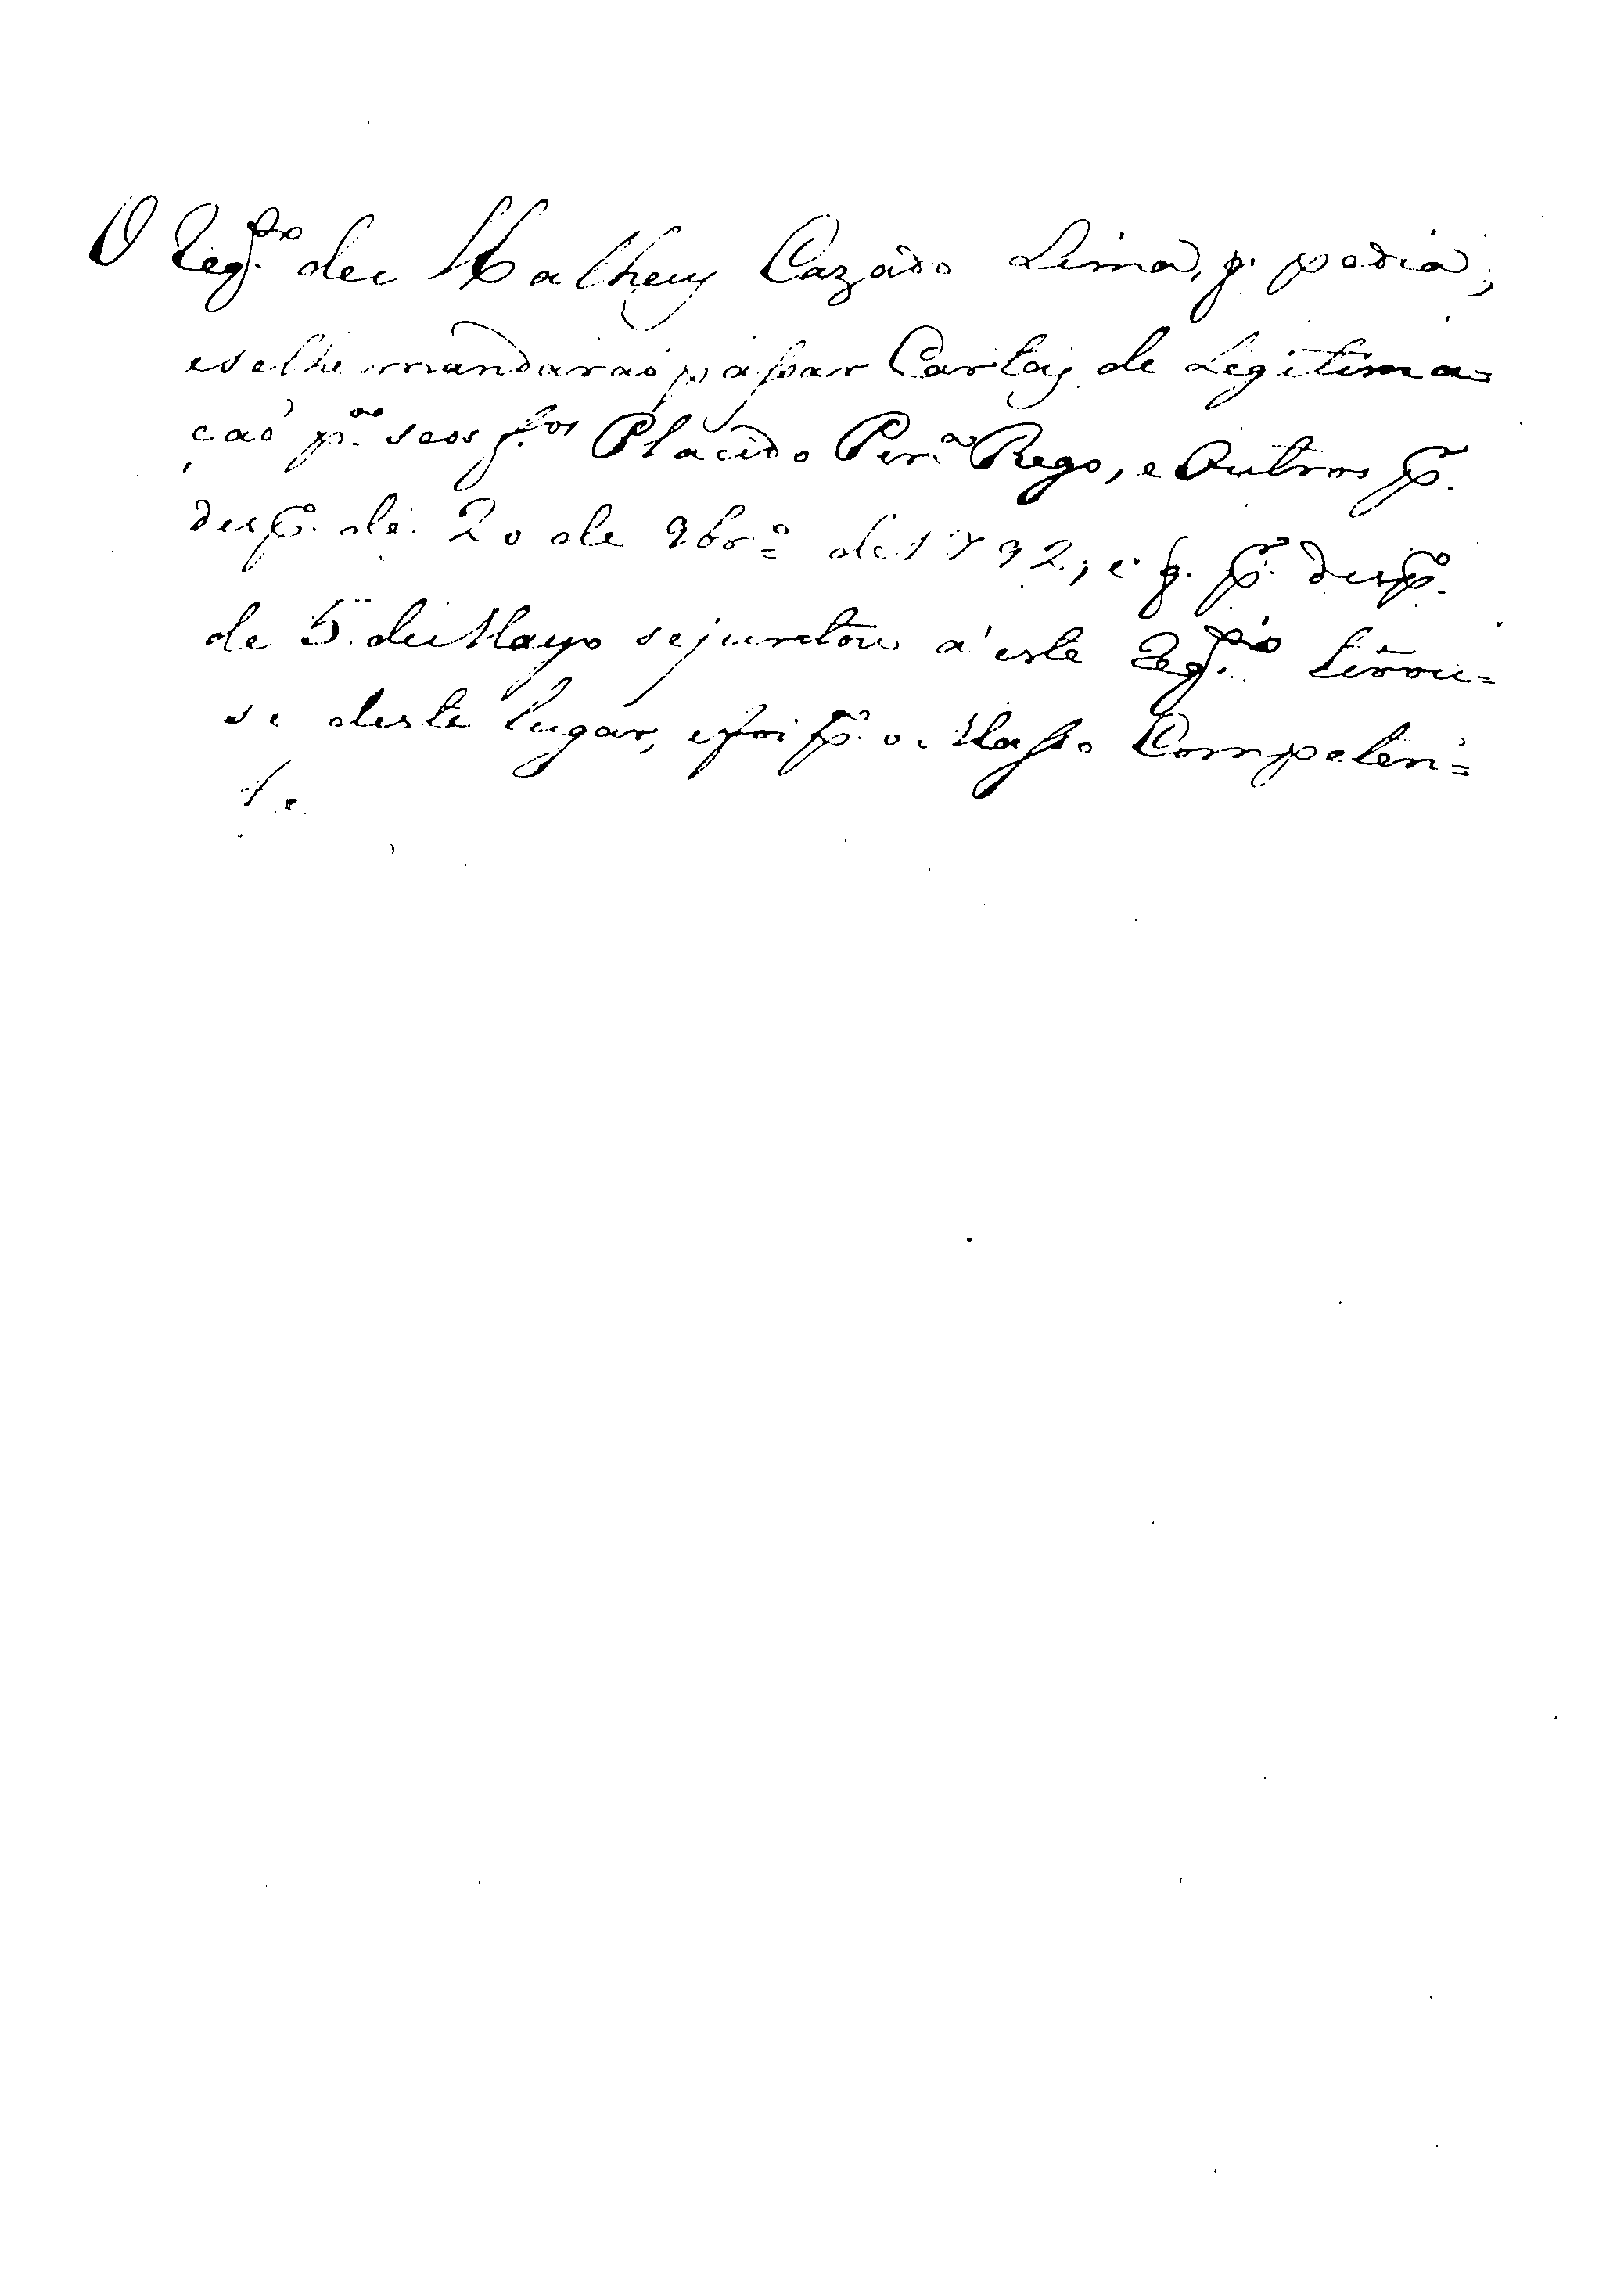 O Reqr.to de Matheus Cazado Lima, q. pedia,
e se lhe mandaraõ passar Cartas de Legitima=
çaõ p.a seos f.os Placido Per.a Rego, e Outros p.r
desp.o de 20 de 9br.o de 1792; e q. p.r desp.o
de 5 de Mayo se juntou a' este Reqr.to tirou=
se deste lugar, e foi p.a o Masso Competen=
te.